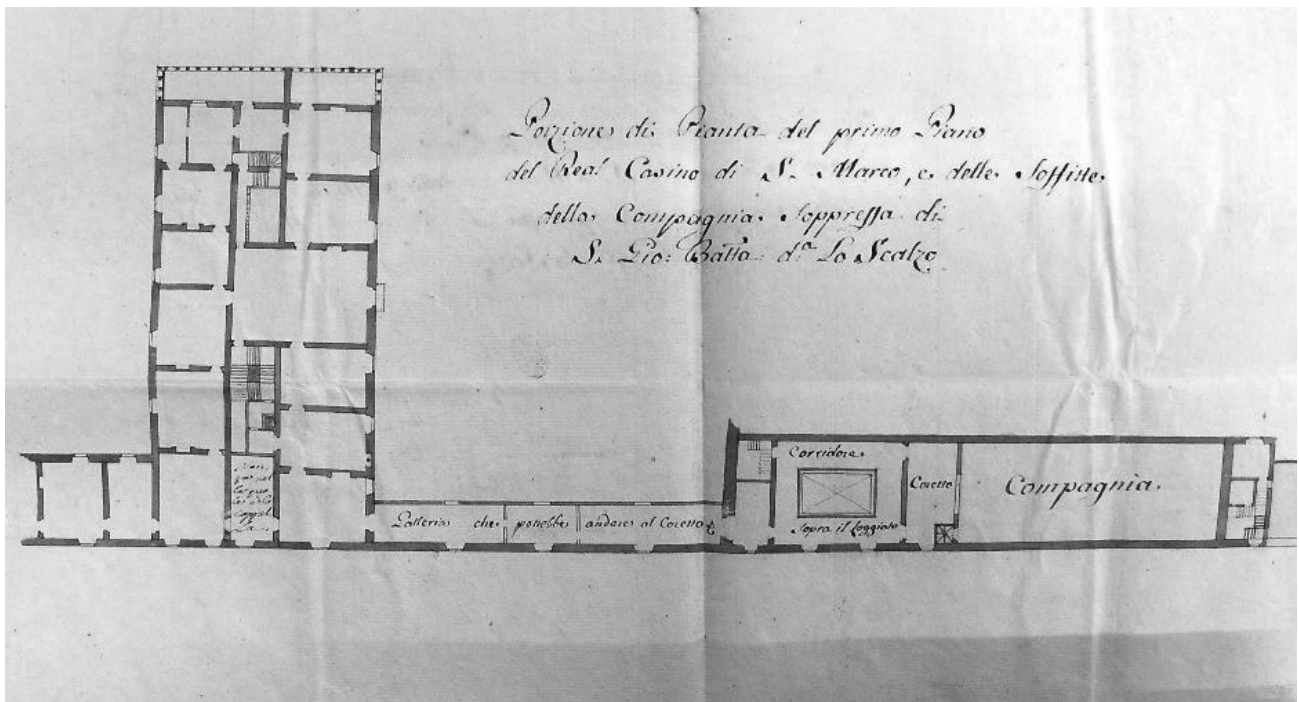 Porzione di Pianta del primo Piano
del Real Casino di S. Marco, e delle Soffitte
della Compagnia Soppressa di
S. Gio: Batta. d.ª Lo Scalzo
Corridore
Galleria che potrebbe andare al Coretto
Sopra il Loggiato
Coretto
Compagnia